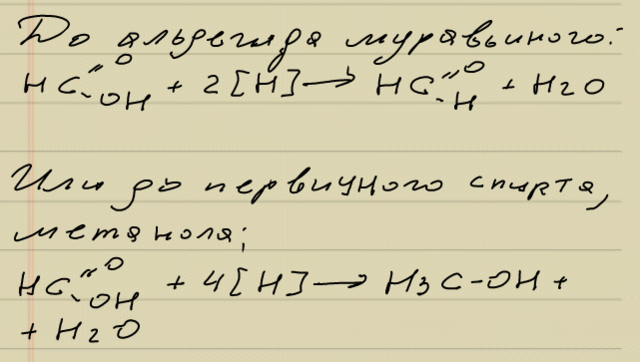 До альдегида муравьиного:
HC(=O)-OH + 2[H] → HC(=O)-H + H2O
Или до первичного спирта,
метанола;
HC(=O)-OH + 4[H] → H3C-OH +
+ H2O